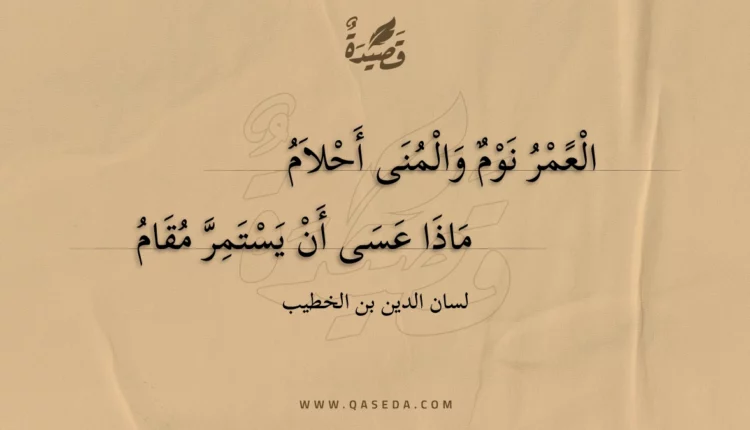 قَصِيدَةٌ
الْعًمْرُ نَوْمٌ وَالْمُنَى أَحْلاَمُ
مَاذَا عَسَى أَنْ يَسْتَمِرَّ مُقَامُ
لسان الدين بن الخطيب
WWW.QASEDA.COM